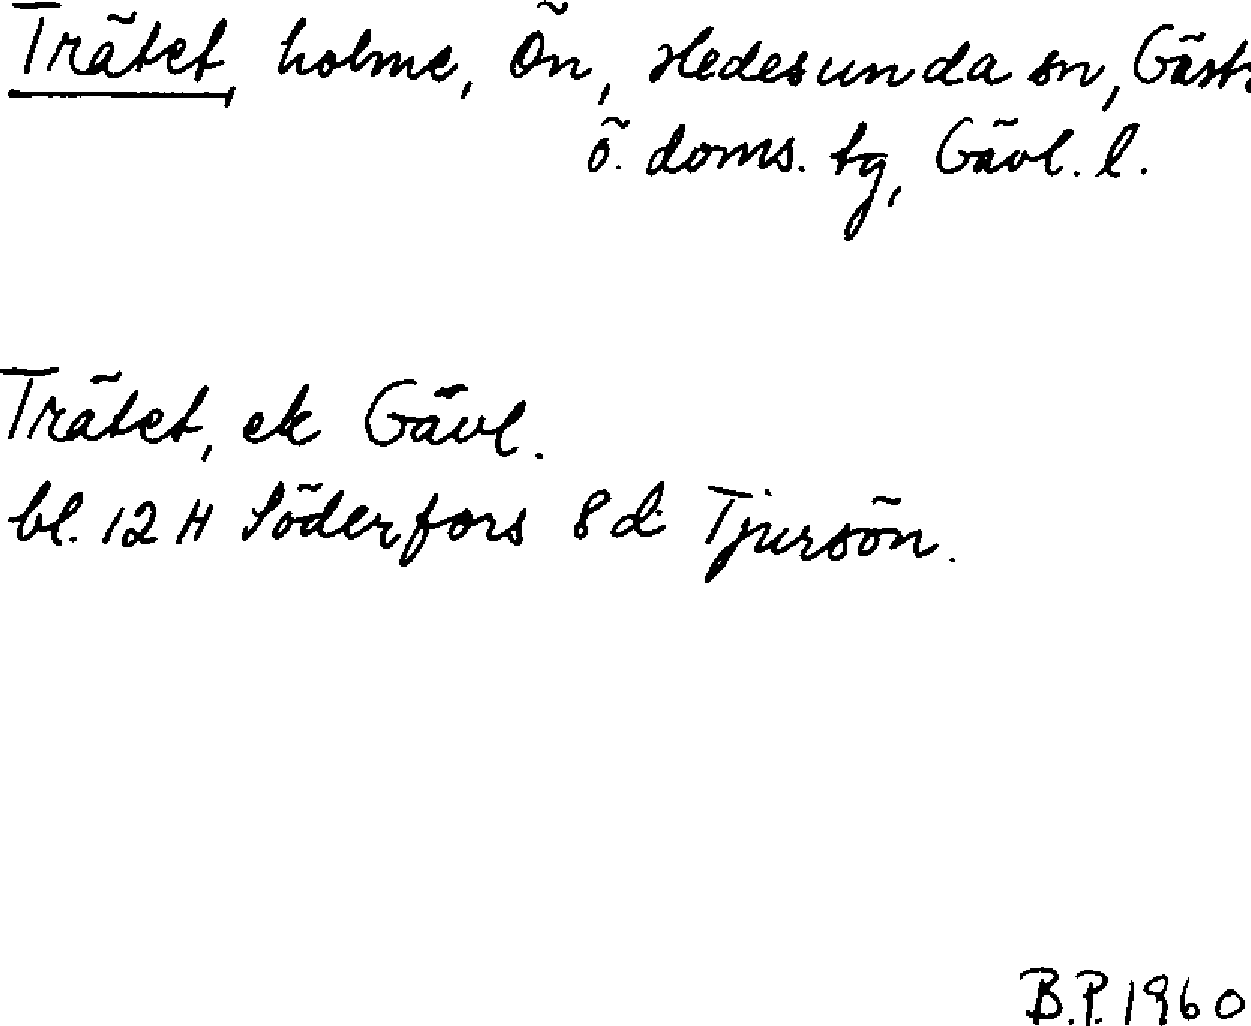 Trätet, holme, Ön, Hedesunda sn, Gästr.
ö. doms. tg, Gävl. l.
Trätet, ek Gävl.
bl. 12 H Söderfors 8 d Tjursön.
B.P. 1960